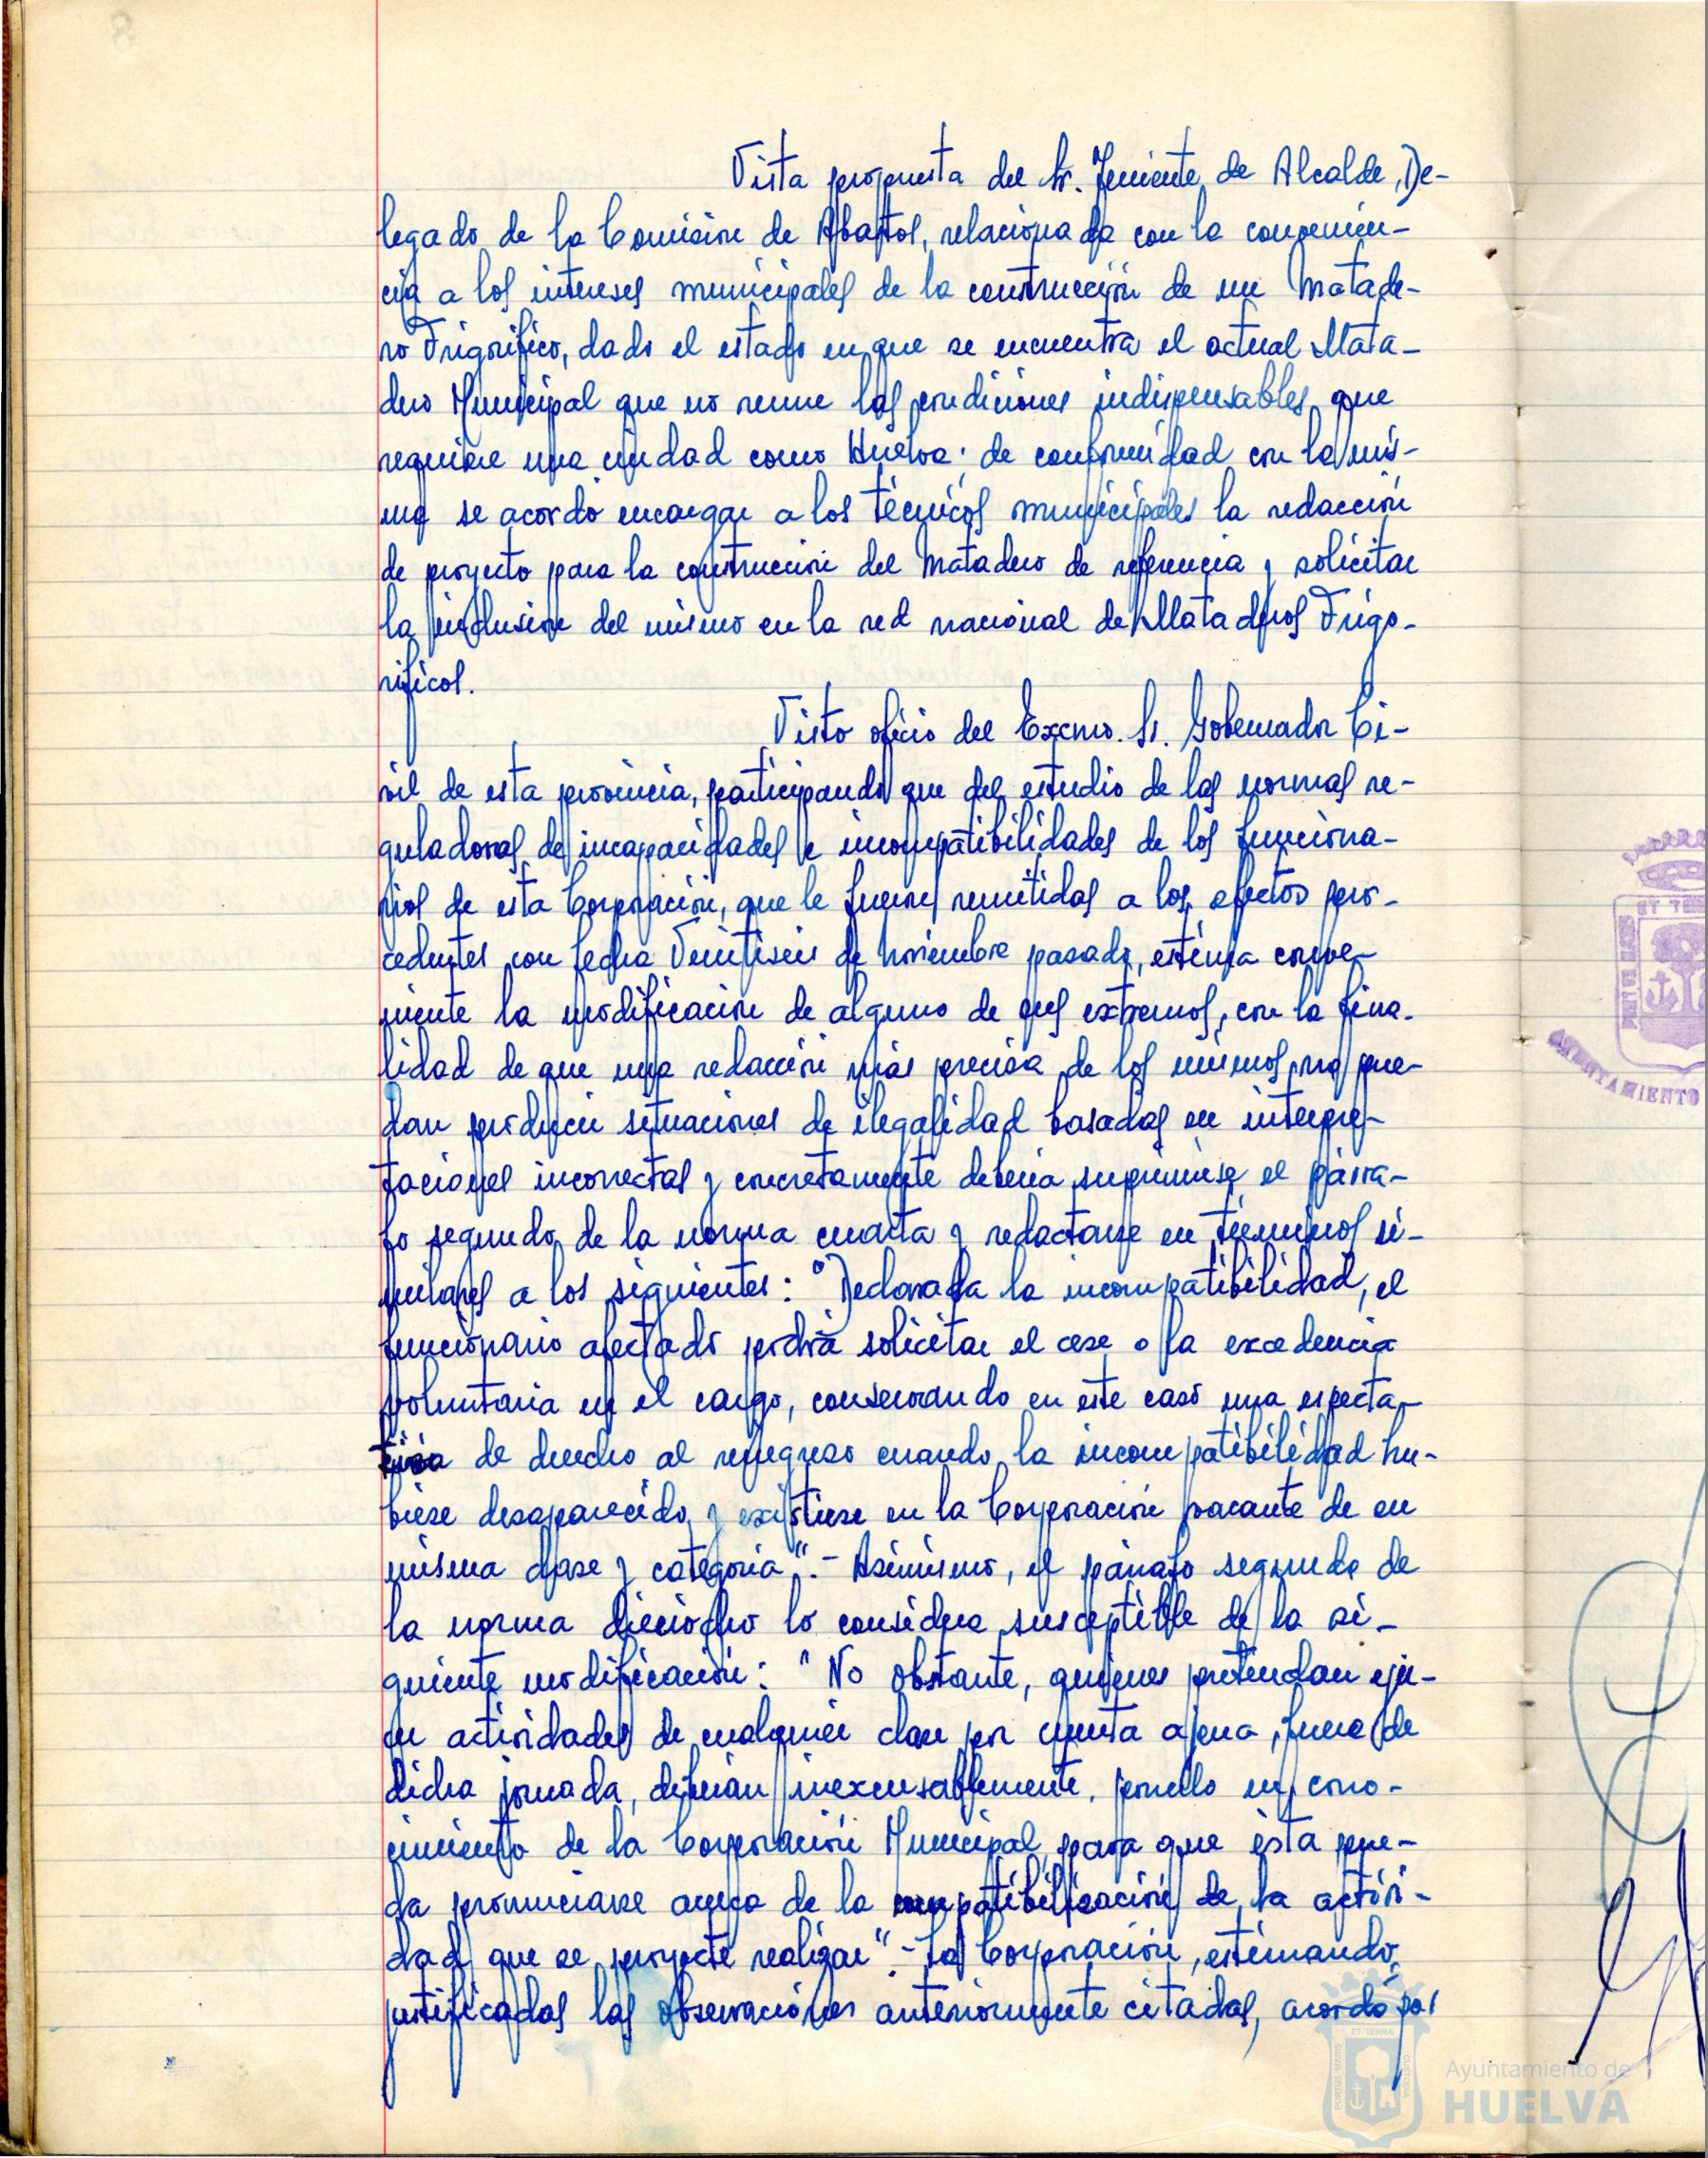 Vista propuesta del Sr. Teniente de Alcalde, De-
legado de la Comisión de Abastos, relacionada con la convenien-
cia a los intereses municipales de la construcción de un Matade-
ro Frigorifico, dado el estado en que se encuentra el actual Mata-
dero Municipal que no reune las condiciones indispensables que
requiere una ciudad como Huelva; de conformidad con la mis-
ma se acordó encargar a los técnicos municipales la redacción
de proyecto para la construcción del Matadero de referencia y solicitar
la inclusión del mismo en la red nacional de Mataderos Frigo-
rificos.
Visto oficio del Excmo. Sr. Gobernador Ci-
vil de esta provincia, participando que del estudio de las normas re-
guladoras de incapacidades e incompatibilidades de los funciona-
rios de esta Corporación, que le fueron remitidas a los efectos pro-
cedentes con fecha Veintiseis de noviembre pasado, estima conve-
niente la modificación de alguno de sus extremos, con la fina-
lidad de que una redacción más precisa de los mismos, no pue-
dan producir situaciones de ilegalidad basadas en interpre-
taciones incorrectas y concretamente debería suprimirse el párra-
fo segundo de la norma cuarta y redactarse en términos si-
milares a los siguientes: "Declarada la incompatibilidad, el
funcionario afectado podrá solicitar el cese o la excedencia
voluntaria en el cargo, conservando en este caso una especta-
tiva de derecho al reingreso cuando la incompatibilidad hu-
biese desaparecido y existiese en la Corporación vacante de su
misma clase y categoría".- Asimismo, el párrafo segundo de
la norma dieciocho lo considera susceptible de la si-
guiente modificación: "No obstante, quienes pretendan ejer-
cer actividades de cualquier clase por cuenta ajena, fuera de
dicha jornada, deberán inexcusablemente, ponerlo en cono-
cimiento de la Corporación Municipal para que ésta pue-
da pronunciarse acerca de la compatibilización de la activi-
dad que se proyecte realizar".- La Corporación, estimando
justificadas las observaciones anteriormente citadas, acordó por
ET TERRA
AYUNTAMIENTO
Ayuntamiento de
HUELVA